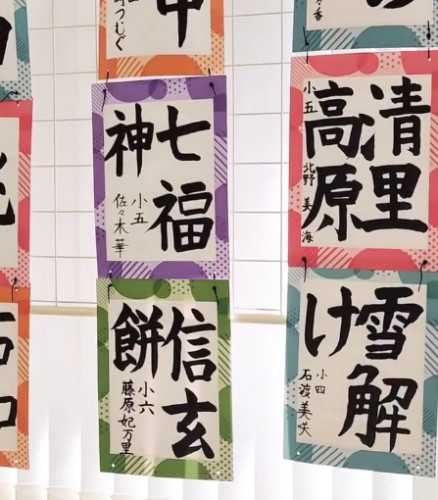 清里
高原
小五
北野 美海
雪解
け
小四
石渡美咲
中
つむぐ
七福
神
小五
佐々木華
信玄
餅
小六
藤原妃万里